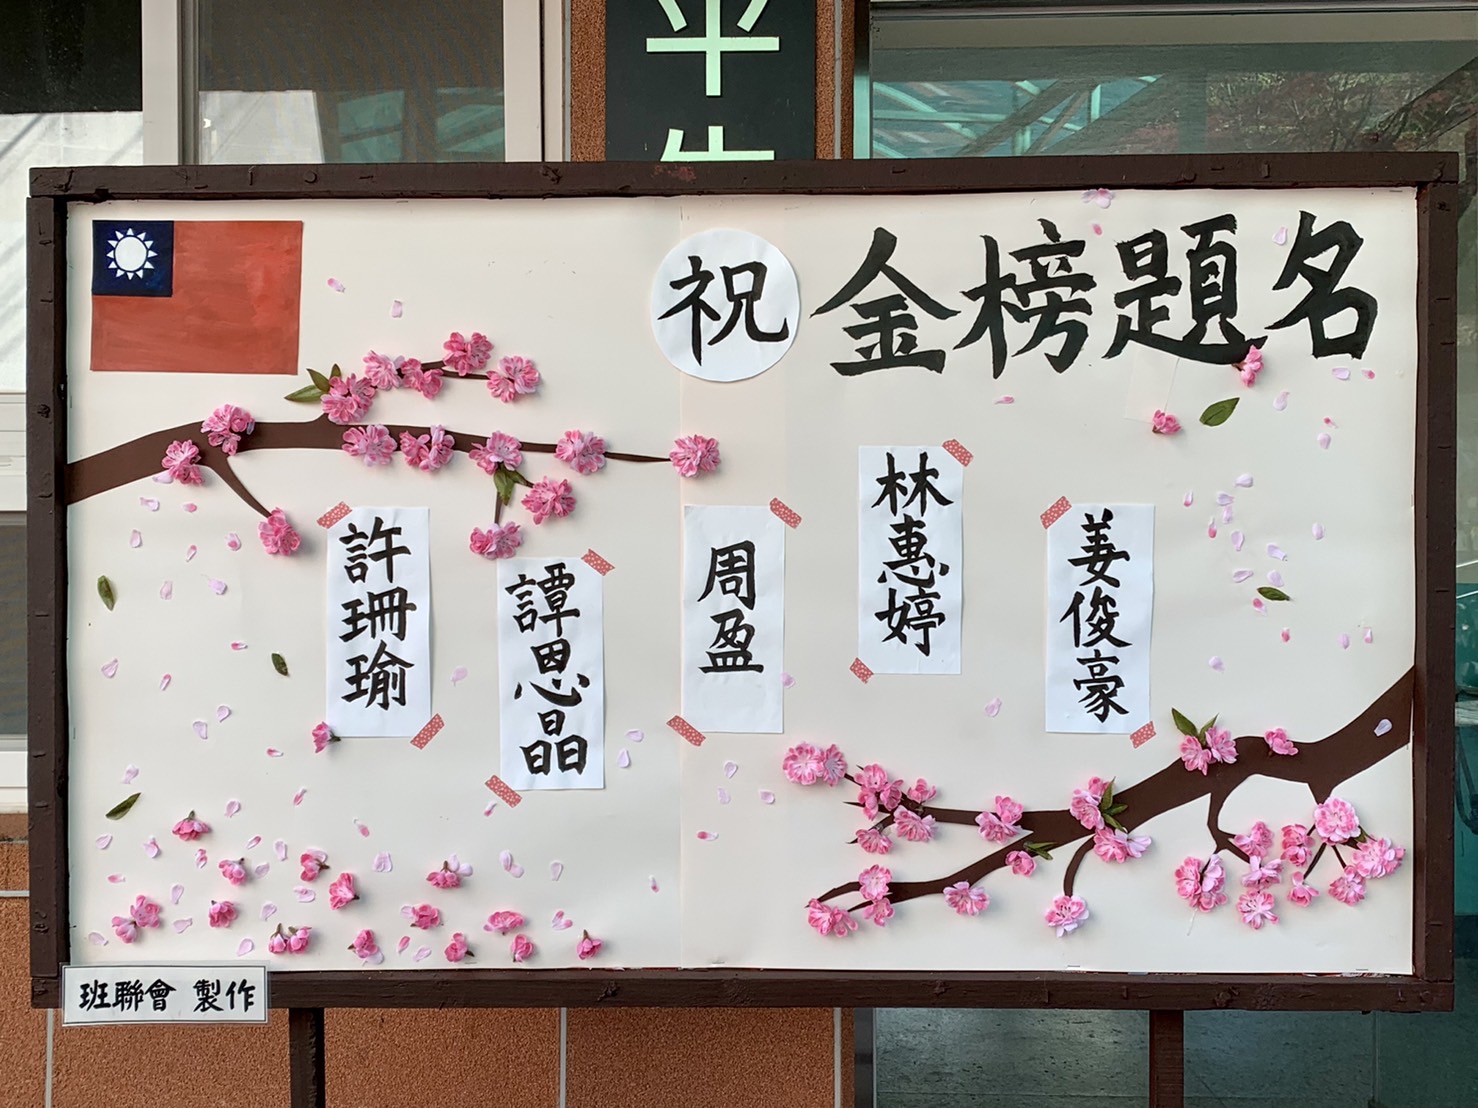 平
生
祝
金榜題名
許珊瑜
譚恩晶
周盈
林惠婷
姜俊豪
班聯會 製作